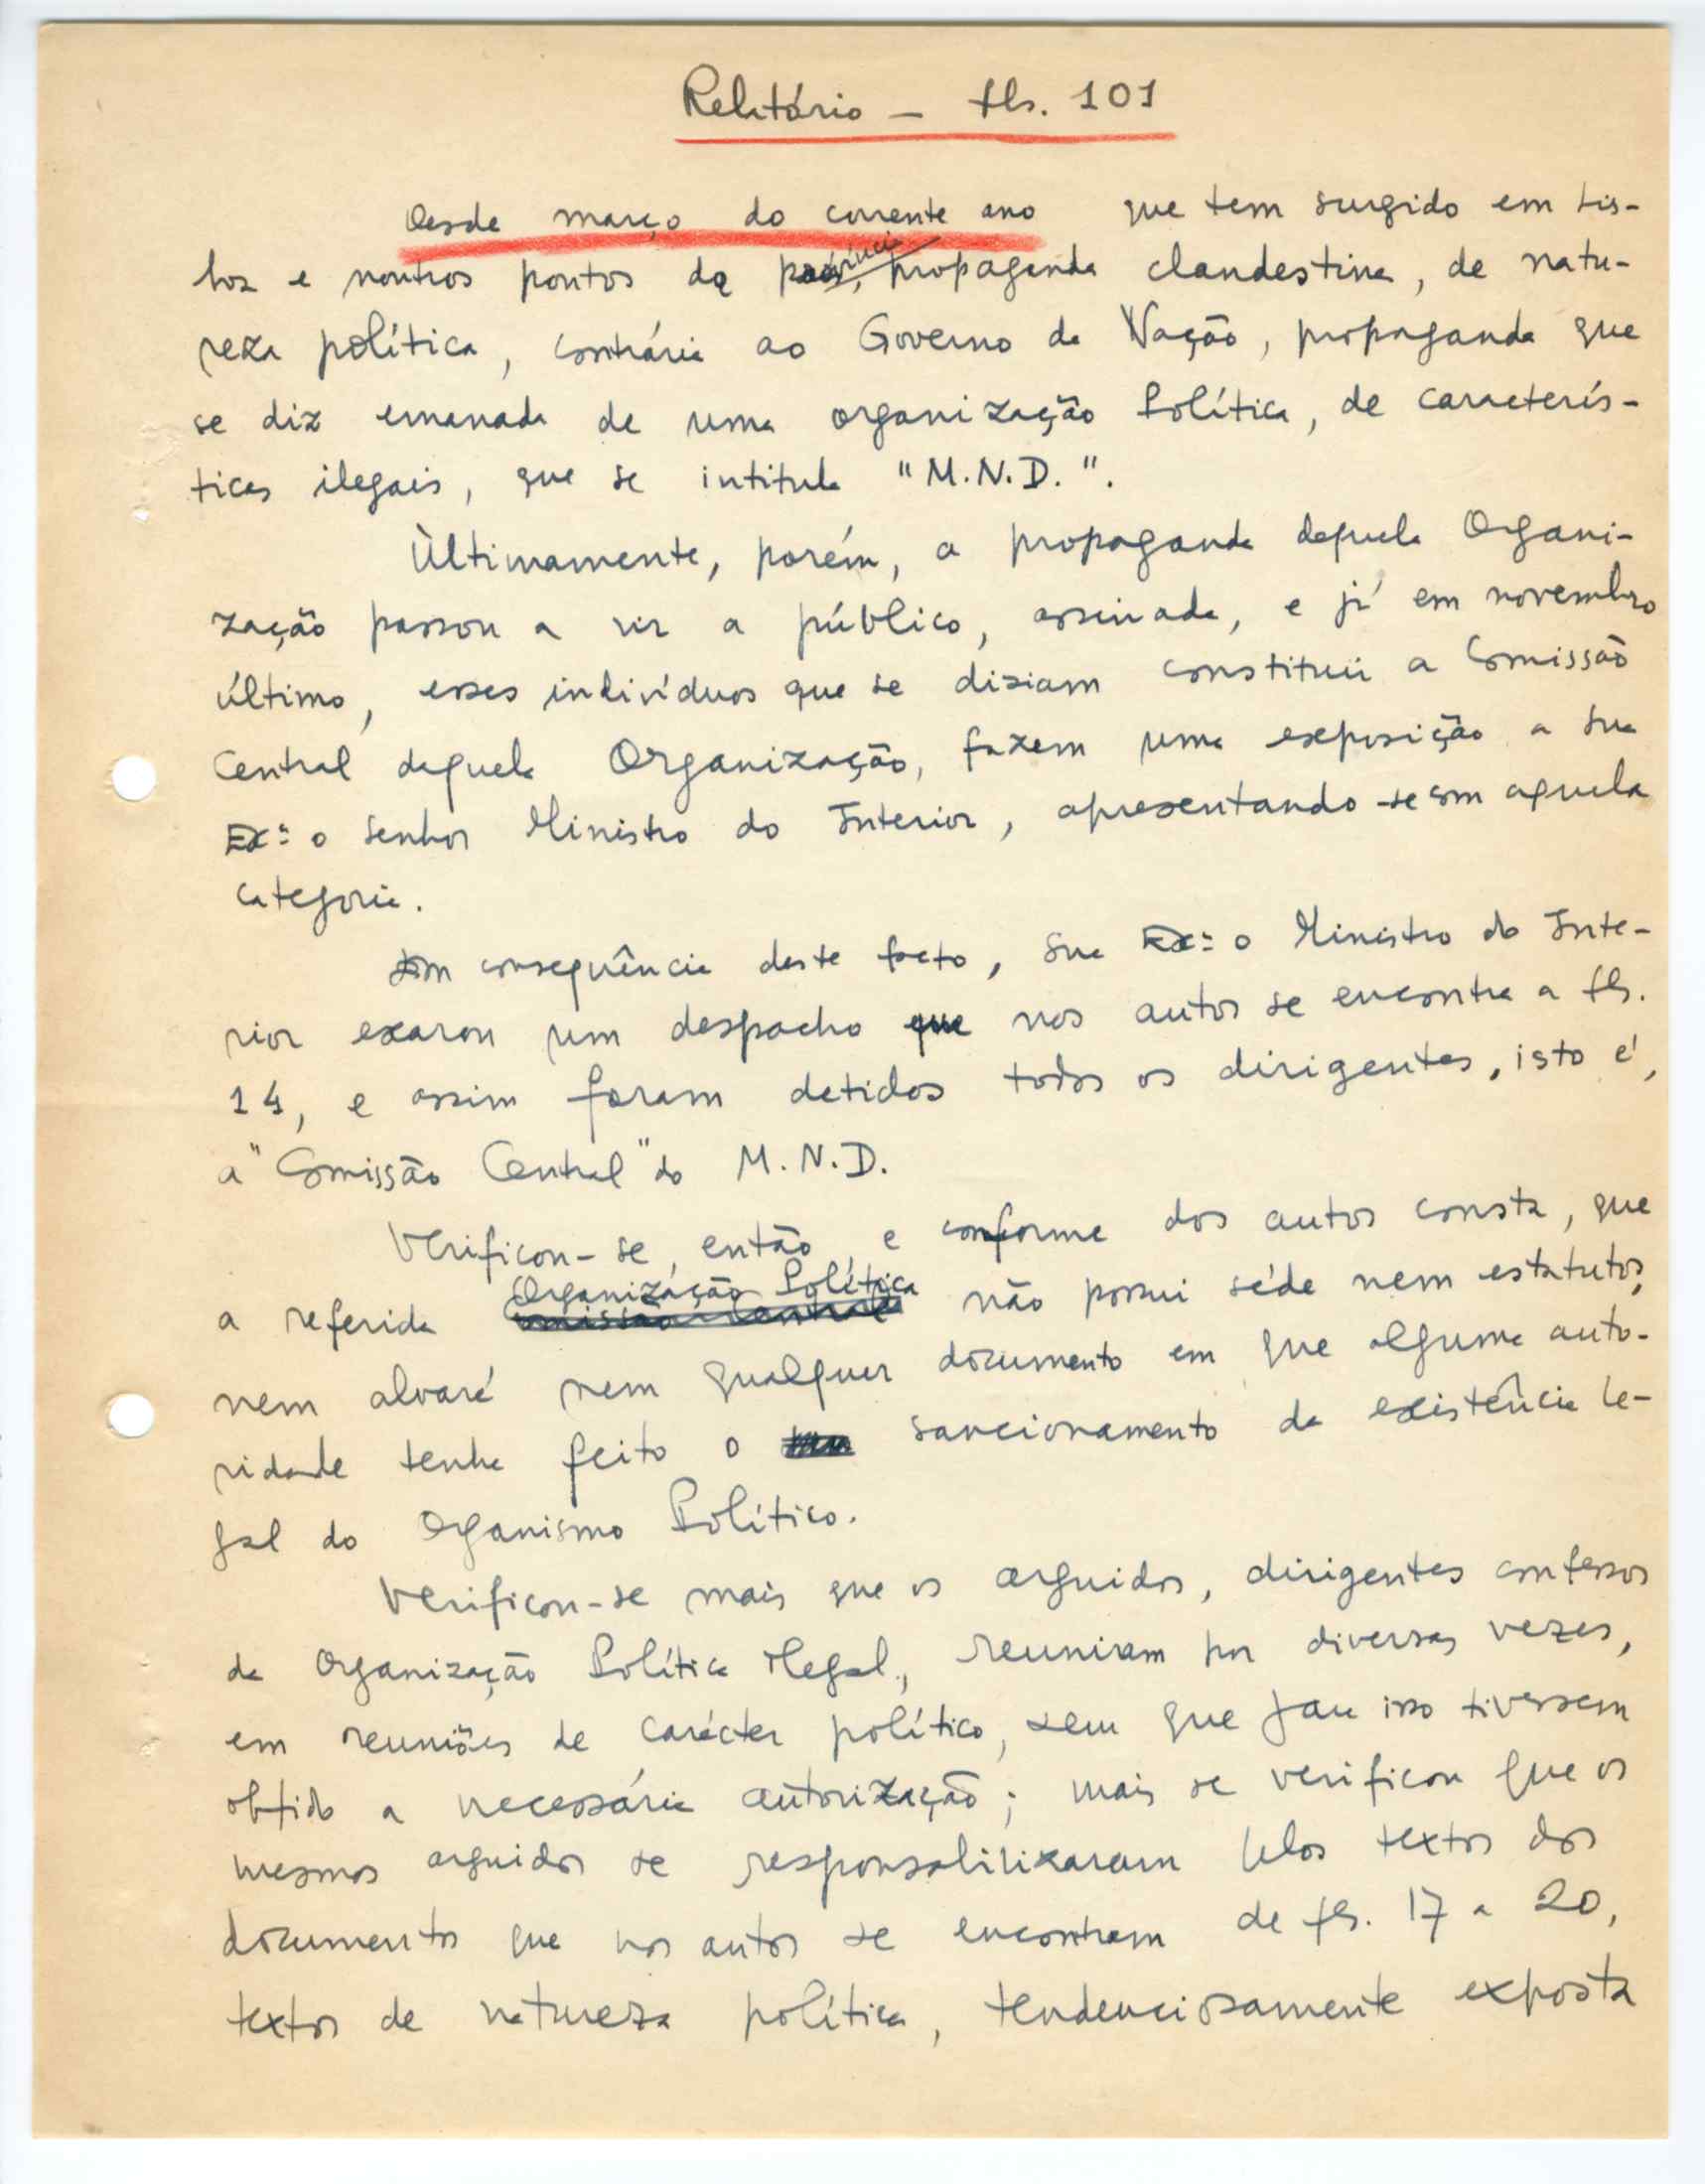 Relatório — fls. 101
Desde março do corrente ano que tem surgido em Lis-
boa e noutros pontos da província, propaganda clandestina, de natu-
reza política, contrária ao Governo da Nação, propaganda que
se diz emanada de uma organização Política, de caracterís-
ticas ilegais, que se intitula "M.N.D.".
Ùltimamente, porém, a propaganda daquela Organi-
zação passou a vir a público, assinada, e já em novembro
último, esses indivíduos que se diziam constituir a Comissão
Central daquela Organização, fazem uma exposição a Sua
Exª o Senhor Ministro do Interior, apresentando-se com aquela
categoria.
Em consequência deste facto, Sua Exª o Ministro do Inte-
rior exarou um despacho que nos autos se encontra a fls.
14, e assim foram detidos todos os dirigentes, isto é,
a "Comissão Central" do M.N.D.
Verificou-se, então, e conforme dos autos consta, que
a referida Organização Política não possui séde nem estatutos,
nem alvará nem qualquer documento em que alguma auto-
ridade tenha feito o sancionamento da existência le-
gal do Organismo Político.
Verificou-se mais que os arguidos, dirigentes confessos
da Organização Política Ilegal, reuniram por diversas vezes,
em reuniões de carácter político, sem que para isso tivessem
obtido a necessária autorização; mais se verificou que os
mesmos arguidos se responsabilizaram pelos textos dos
documentos que nos autos se encontram de fls. 17 a 20,
textos de natureza política, tendenciosamente exposta